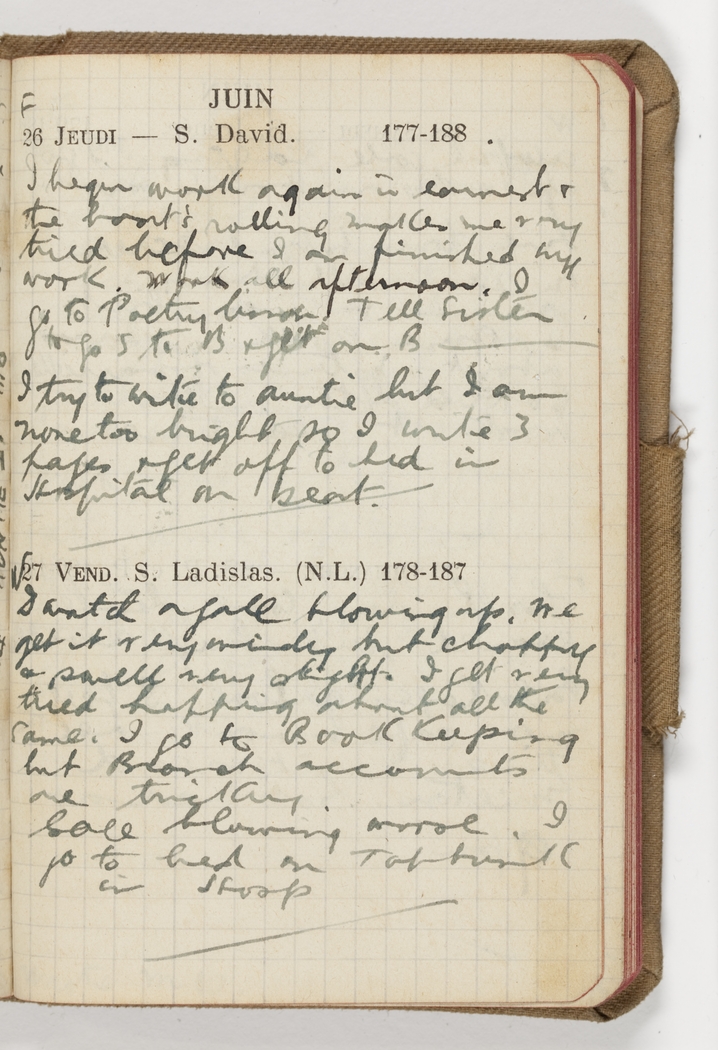 F
JUIN
26 JEUDI — S. David. 177-188.
I begin work again in earnest &
the boat's rolling makes me very
tired before I am finished my
work. Work all afternoon. I
go to Poetry Tell Sister
to go 5 to B & get on B
I try to write to auntie but I am
none too bright so I write 3
pages & get off to bed in
Hospital on seat.
27 VEND. S. Ladislas. (N.L.) 178-187
a gale blowing up. We
get it very windy but choppy
& swell very slight. I get very
tired happing about all the
same. I go to Book Keeping
but Branch accounts
are tricky
Gale blowing worse. I
go to bed on Top bunk
in Hosp